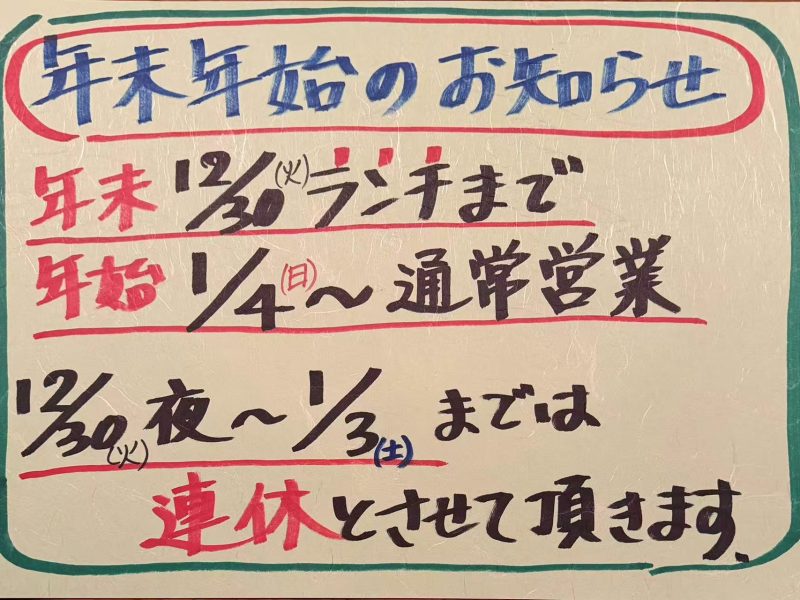 年末年始のお知らせ
年末 12/30(火)ランチまで
年始 1/4(日)〜通常営業
12/30(火)夜〜1/3(土)までは
連休とさせて頂きます、